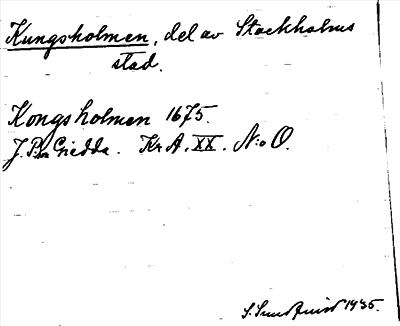 Kungsholmen, del av Stockholms
stad.
Kongsholmen 1675.
J. P:n Giedda. Kr A. XX. N:o O.
S. Sundquist 1935.